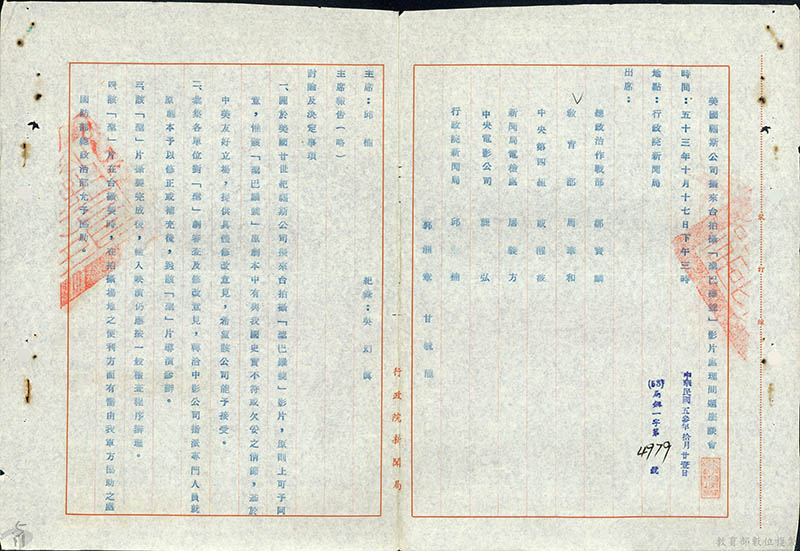 美國福斯公司擬來台拍攝「聖巴羅縷」影片處理問題座談會
中華民國五參年拾月廿壹日
(53)局 一字第4979號
時間：五十三年十月十七日下午三時
地點：行政院新聞局
出席：
總政治作戰部
教育部 周
中央第四組
新聞局電檢處 屠義方
中央電影公司 弘
行政院新聞局 邱楠
甘毓龍
主席：邱楠
紀錄：吳幻
主席報告（略）
討論及決定事項
一、關於美國廿世紀福斯公司擬來台拍攝「聖巴羅縷」影片，原則上可予同
意，惟該「聖巴羅縷」原劇本中有與我國史實不符或欠妥之情節，基於
中美友好立場，提供具體修改意見，希望該公司能予接受。
二、彙集各單位對「聖」劇審查及修改意見，轉洽中影公司指派專門人員就
原劇本予以修正或補充後，與該「聖」片導演參辦。
三、該「聖」片攝製完成後，輸入映演仍應按一般檢查程序辦理。
四、該「聖」片在台攝製時，在拍攝場地之便利方面有需由我軍方協助之處
國防部總政治部允予協助。
行政院新聞局
裝 訂 線
教育部數位